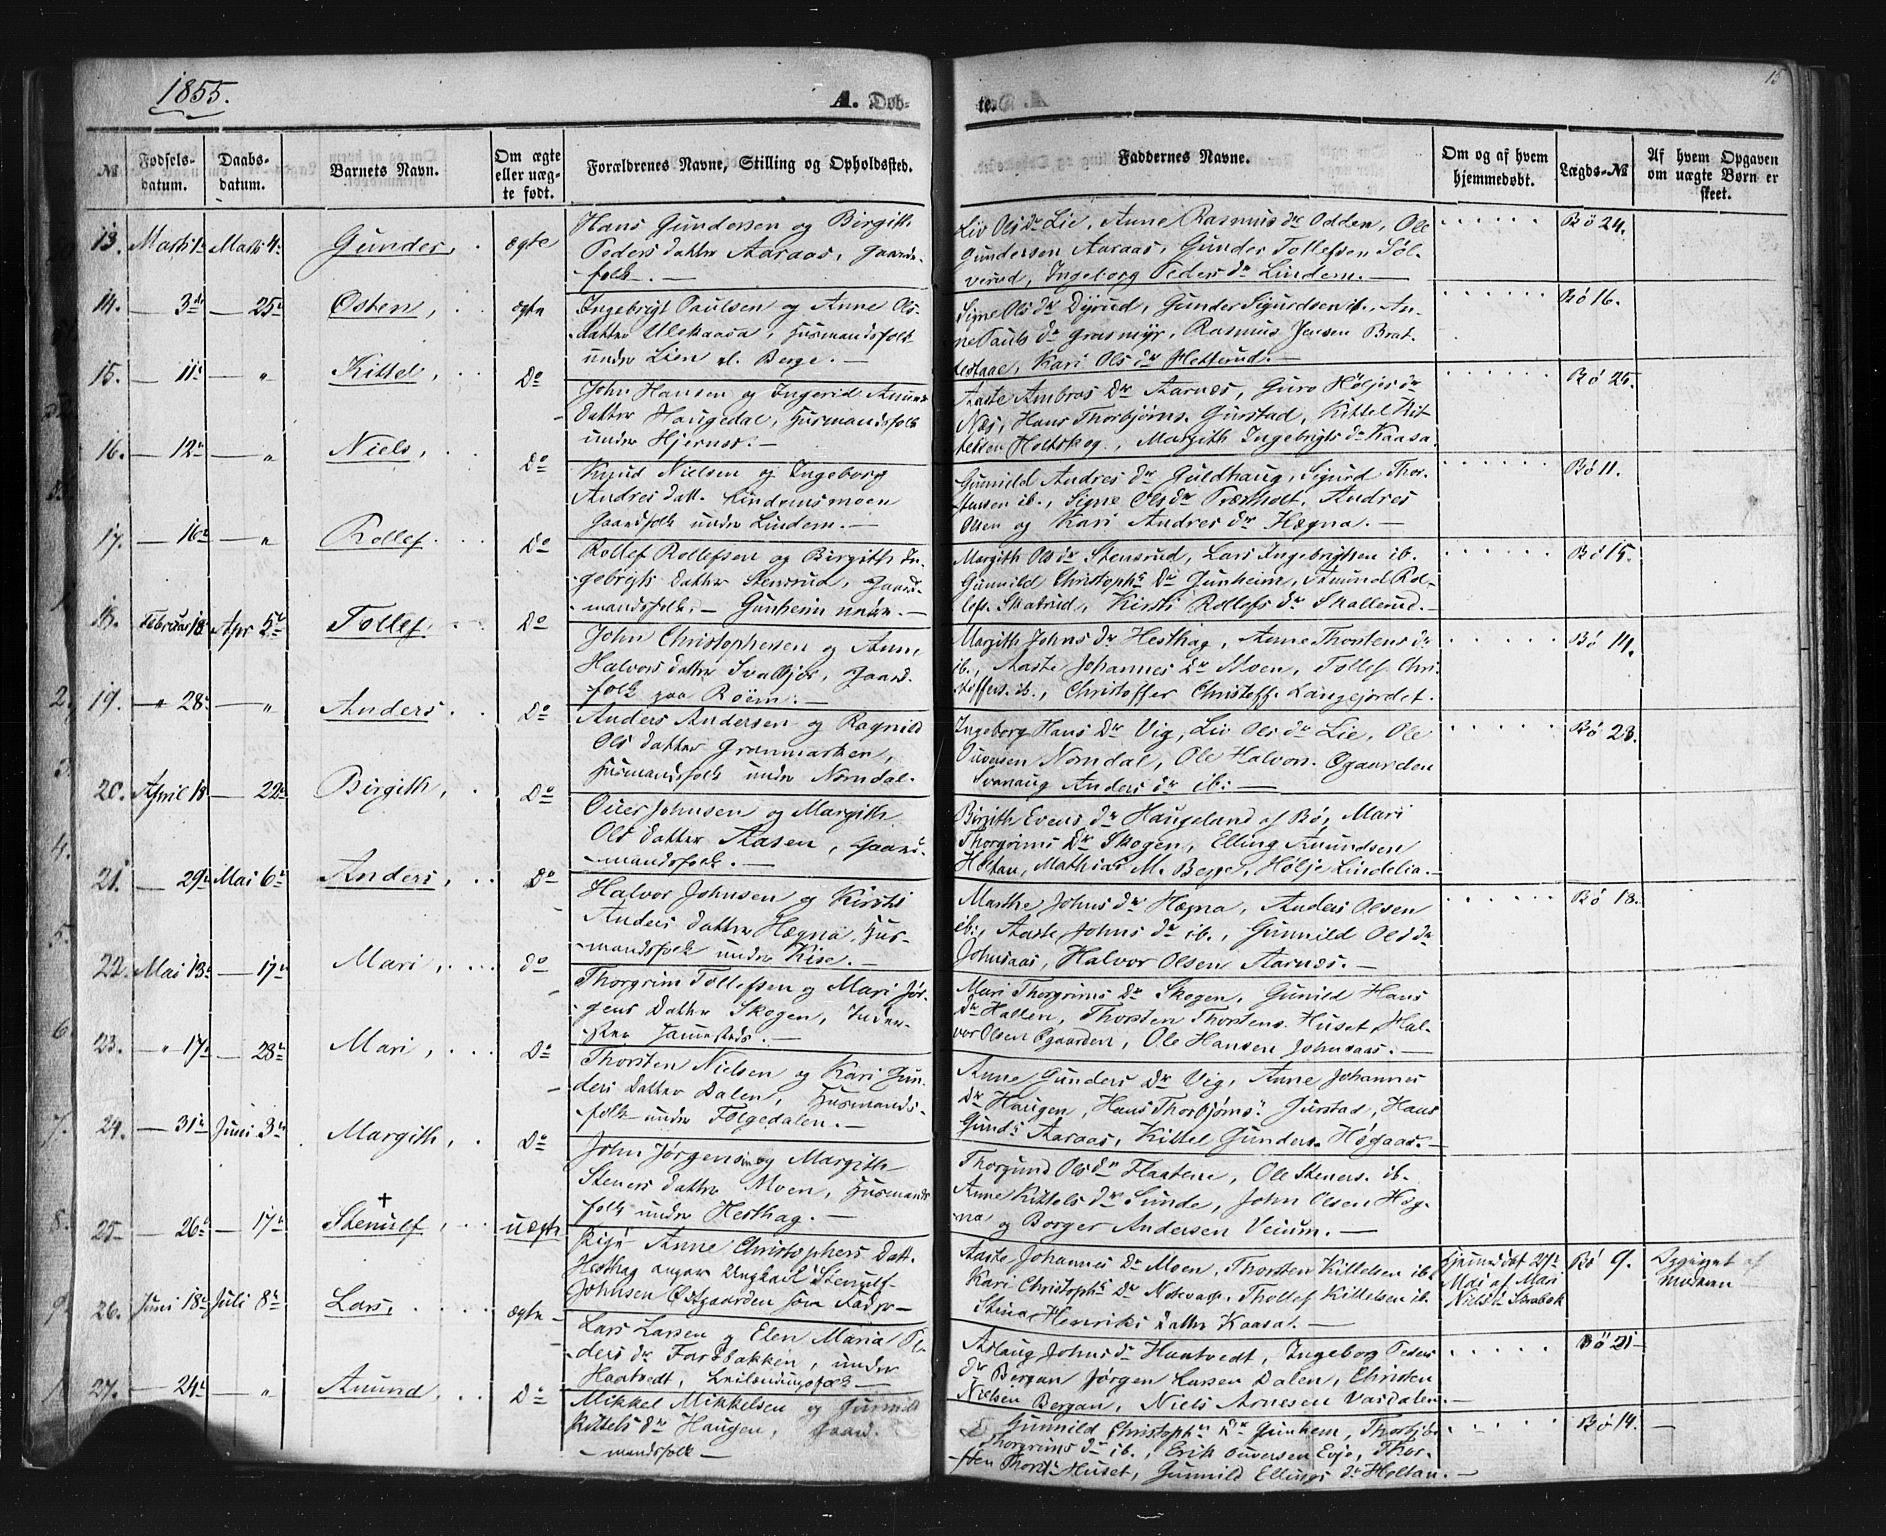 1855.
A. Døb-
te.
15
№
Fødsels-
datum.
Daabs-
datum.
Barnets Navn.
Om ægte
eller uæg-
te født.
Forældrenes Navne, Stilling og Opholdssted.
Faddernes Navne.
Om og af hvem
hjemmedøbt.
Lægds-№
Af hvem Opgaven
om uægte Børn er
skeet.
13. Marts 1 Marts 4 Gunder, ægte
Hans Gundersen og Birgith
Peders datter Aaraas, Gaard-
folk. —
Liv Ols dr Lie, Anne Rasmus dr Odden, Ole
Gundersen Aaraas, Gunder Tollefsen Søl-
verud, Ingeborg Peders dr Lindem. —
Bø 24.
14. — 3 — 25 Osten, ægte
Ingebrigt Paulsen og Anne Ols-
datter Ulskaasa, Husmandsfolk
under Lien v. Berge. —
Signe Ols dr Dyrud, Gunder Sigurdsen ib. An-
ne Pauls dr Grasmyr, Rasmus Jensen Brat-
testaae, Kari Ols dr Hetterud. —
Bø 16.
15. — 11 — " Kittel, Do
John Hansen og Ingerid Amund
datter Haugedal, Husmandsfolk
under Hjernes. —
Aaste Ambros dr Aarnes, Guro Høljes dr
Næs, Hans Thorbjørns. Gurstad, Kittel Kit-
telsen Holtskog, Margith Ingebrigts dr Kaasa.
Bø 25.
16. — 12 — " Niels, Do
Knud Nielsen og Ingeborg
Andres datt. Lindemsmoen
Gaardfolk under Lindem. —
Gunnild Andres dr Guldhaug, Sigurd Thor-
stensen ib., Signe Ols dr Trætholt, Andres
Olsen og Kari Andres dr Hægna. —
Bø 11.
17. — 16 — " Rollef Do
Rollef Rollefsen og Birgith In-
gebrigts datter Stensrud, Gaard-
mandsfolk, — Gunheim —
Margith Ols dr Stensrud, Lars Ingebrigtsen ib.
Gunnild Christophs Dr Gunheim, Amund Rol-
lefs. Skabrud, Kirsti Rollefs dr Skallerud. —
Bø 15.
18. Februar 18 Apr 5 Tollef Do
John Christophersen og Anne
Halvors datter Svalbjør, Gaard-
folk paa Roëim. —
Margith Johns dr Hesthag, Anne Thorstens dr
ib., Aaste Johannes Dr Moen, Tollef Chri-
stoffers. ib., Christoffer Christoff. Langejordet.
Bø 14.
19. " 28 — " Anders Do
Anders Andersen og Ragnild
Ols datter Grønmarken,
Husmandsfolk under Norndal.
Ingeborg Hans Dr Vig, Liv Ols dr Lie, Ole
Ouversen Norndal, Ole Halvors. Ogaarden
Svanaug Anders dr ib: —
Bø 23.
20. April 18 — 22 Birgith, Do
Ouer Johnsen og Margith
Ols datter Aasen, Gaard-
mandsfolk. —
Birgith Evens dr Haugeland af Bø, Mari
Thorgrims Dr Skogen, Elling Amundsen
Holtan, Mathias M. Berge, Hølje Lindelia.
21. — 29 Mai 6 Anders, Do
Halvor Johnsen og Kirsti
Anders datter Hægna, Hus-
mandsfolk under Kise. —
Marthe Johns dr Hægna, Anders Olsen
ib:, Aaste Johns dr ib., Gunnild Ols dr
Johnsaas, Halvor Olsen Aarnes. —
Bø 18.
22. Mai 13 — 17 Mari, do
Thorgrim Tollefsen og Mari Jør-
gens Datter Skogen, Inder-
—
Mari Thorgrims Dr Skogen, Gunild Hans
dr Hallen, Thorsten Thorstens. Huset, Hal-
vor Olsen Ogaarden, Ole Hansen Johnsaas. —
23. " 17 — 28 Mari, Do
Thorsten Nielsen og Kari Gun-
ders Datter Dalen, Husmands-
folk under Folgedalen. —
Anne Gunders Dr Vig, Anne Johannes
Dr Haugen, Hans Thorbjørns. Gurstad, Hans
Gund. Aaraas, Kittel Gunders. Høgaas. —
24. — 31 Juni 3 Margith, Do
John Jørgensen og Margith
Steners datter Moen, Husmands
folk under Hesthag. —
Thorgund Ols dr Flaatene, Ole Steners. ib.
Anne Kittels dr Sunde, John Olsen Hæg-
na og Borger Andersen Veium. —
25 — 26 — 17 Stenulf, uægte
Pige Anne Christophers Datt.
Hesthag angav Ungkarl Stenulf
Johnsen Østgaarden som Fader —
Aaste Johannes Dr Moen, Thorsten Kittelsen ib.
Kari Christophs dr, Thollef Kittelsen ib.
Stina Henriks datter Kaasa. —
Hjemmedøbt 27
Mai af Mari
Niels dr
Bø 9.
Opgivet af
Moderen
26. Juni 18 Juli 8 Lars, ægte
Lars Larsen og Elen Maria Pe-
ders dr Farsbakken, under
Haatvedt, Leilendingsfolk —
Aslaug Johns dr Haatvedt, Ingeborg Peders
dr Bergan Jørgen Larsen Dalen, Christen
Nielsen Bergan, Niels Arnesen Vardalen.
Bø 21
27. — 24 — " Amund Do
Mikkel Mikkelsen og Gunnild
Kittels dr Haugen, Gaard-
mandsfolk —
Gunnild Christoph. Dr Gunheim, Thorbjør
Thorgrims dr ib., Erik Ouversen Evje, Thor-
sten Thorst. Huset, Gunnild Ellings dr Holtan. —
Bø 14. —